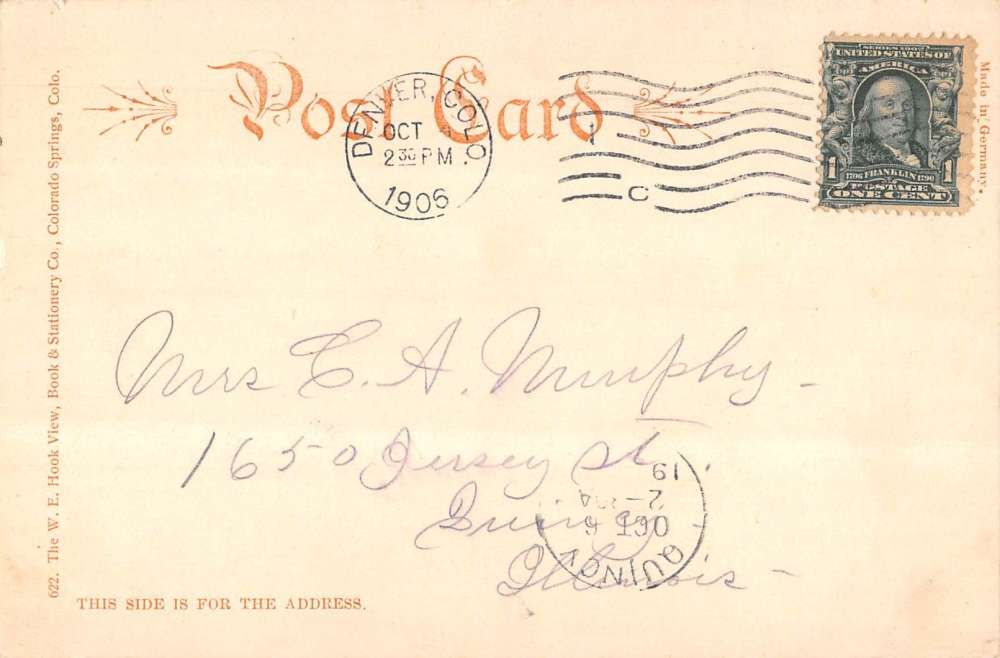 Post Card
DENVER, COLO.
OCT
2 30 PM
1906
C
SERIES 1902
UNITED STATES OF
AMERICA
1706 FRANKLIN 1790
POSTAGE
1 ONE CENT
Made in Germany.
622. The W. E. Hook View, Book & Stationery Co., Colorado Springs, Colo.
Mrs E. A. Murphy
1650 Jersey St.
Quincy
Illinois
QUINCY
OCT 6
19
THIS SIDE IS FOR THE ADDRESS.